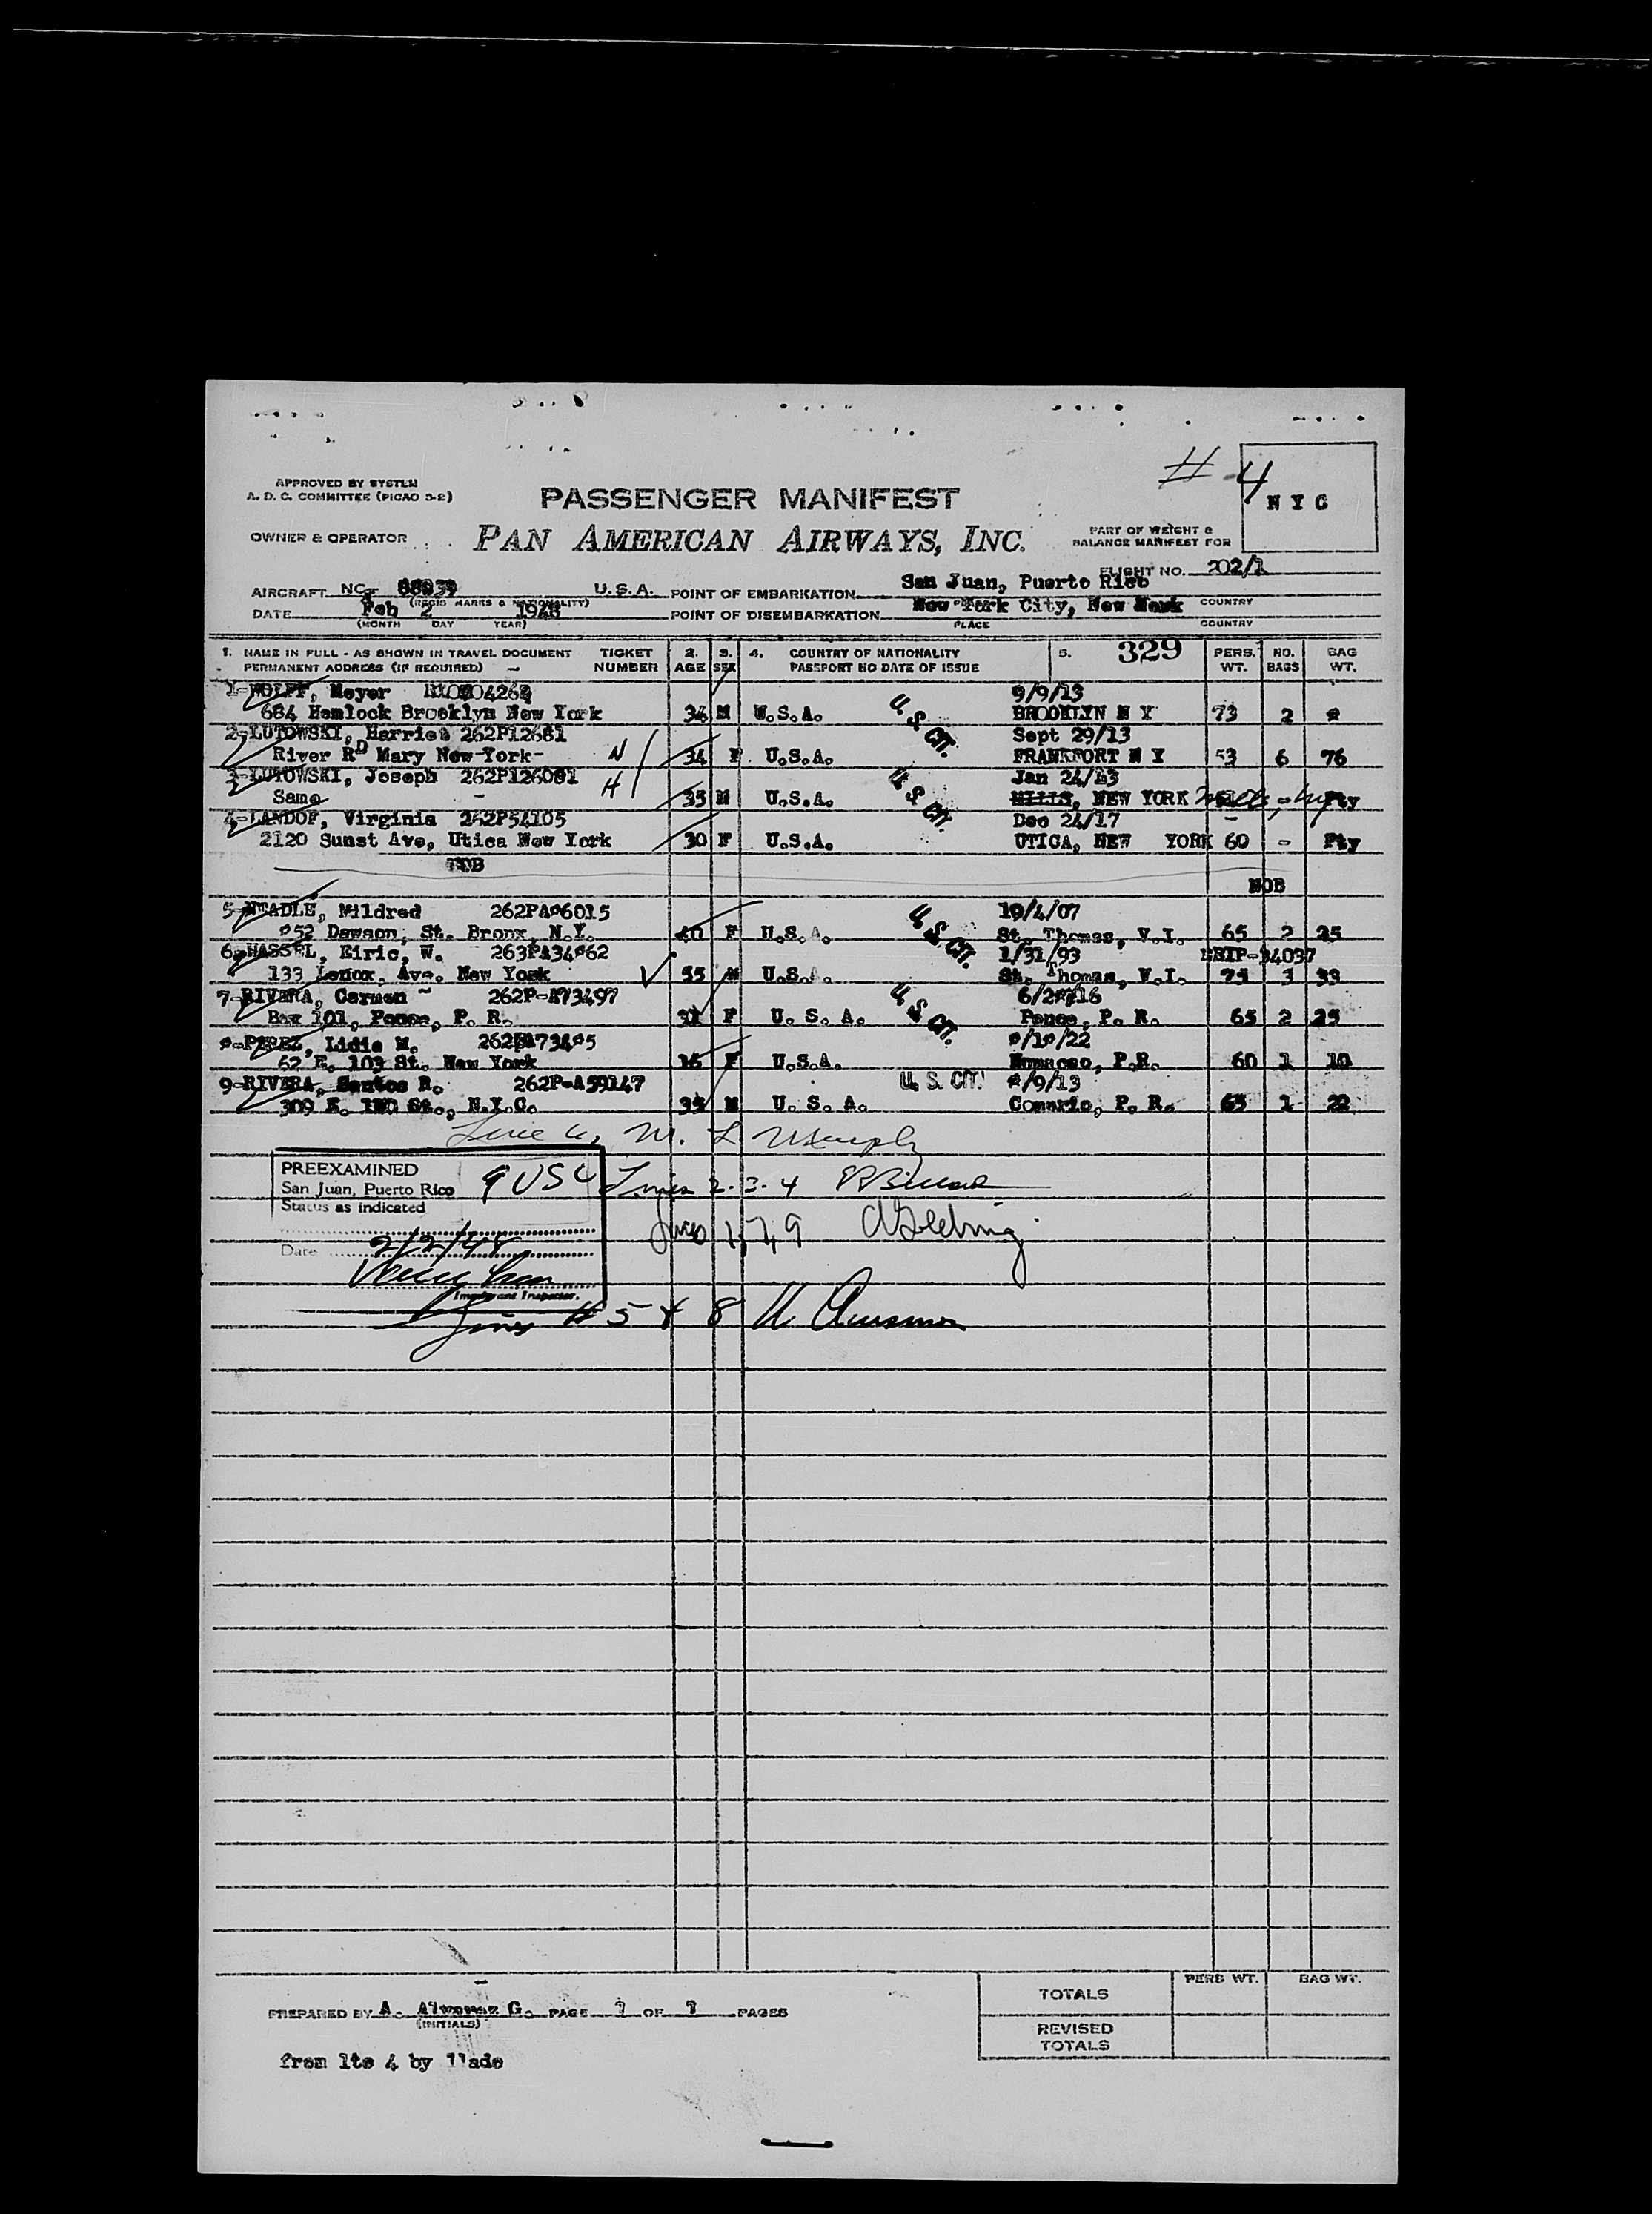 # 4
NYC
APPROVED BY SYSTEM
A. D. C. COMMITTEE (PICAO 3-2)
PASSENGER MANIFEST
OWNER & OPERATOR
PAN AMERICAN AIRWAYS, INC.
PART OF WEIGHT &
BALANCE MANIFEST FOR
FLIGHT NO. 202/1
AIRCRAFT NC- 88939 U.S.A. POINT OF EMBARKATION San Juan, Puerto Rico
(REGIS MARKS & NATIONALITY) COUNTRY
DATE Feb 2 1948 POINT OF DISEMBARKATION New York City, New York
(MONTH DAY YEAR) PLACE COUNTRY
1. NAME IN FULL - AS SHOWN IN TRAVEL DOCUMENT TICKET 2. 3. 4. COUNTRY OF NATIONALITY 5. 329 PERS. NO. BAG
PERMANENT ADDRESS (IF REQUIRED) NUMBER AGE SEX PASSPORT NO DATE OF ISSUE WT. BAGS WT.
1-WOLFF, Meyer 9/9/13
684 Hemlock Brooklyn New York 34 M U.S.A. U. S. CIT. BROOKLYN N Y 73 2
2-LUTOWSKI, Harriet 262P12681 Sept 29/13
River RD Mary New-York- N 34 F U.S.A. FRANKFORT N Y 53 6 76
3-LUTOWSKI, Joseph 262P126081 Jan 24/13
Same H 35 M U.S.A. U. S. CIT. MILLS, NEW YORK - Pty
4-LANDOF, Virginia 262P54105 Dec 24/17
2120 Sunst Ave, Utica New York 30 F U.S.A. UTICA, NEW YORK 60 - Pty
NOB
5- Mildred 262PA86015 10/4/07
852 Dawson, St. Bronx, N.Y. 40 F U.S.A. U. S. CIT. St. Thomas, V.I. 65 2 25
6-HASSEL, Eiric, W. 263PA34862 1/31/93
133 Lenox, Ave. New York 55 M U.S.A. St. Thomas, V.I. 75 3 33
7-RIVERA, Carmen 262P-A73497
Box 101, Ponce, P. R. 31 F U. S. A. U. S. CIT. Ponce, P. R. 65 2 25
8-PEREZ, Lidia M. 8/18/22
62 E. 103 St. New York F U.S.A. Humacao, P.R. 60 1 10
9-RIVERA, Santos R. 262P-A59147 U. S. CIT. 8/9/13
309 E. St., N.Y.C. 34 M U. S. A. Comerio, P. R. 65 1 22
Line 6, M. L Murphy
PREEXAMINED
San Juan, Puerto Rico 9 USC
Status as indicated
Lines 2-3-4
Lines 1, 7, 9
Date 2/2/48
Immigrant Inspector.
Lines # 5 & 8
TOTALS PERS WT. BAG WT.
PREPARED BY A. Alvarez G. PAGE 1 OF 1 PAGES
(INITIALS)
REVISED
TOTALS
from 1to 4 by